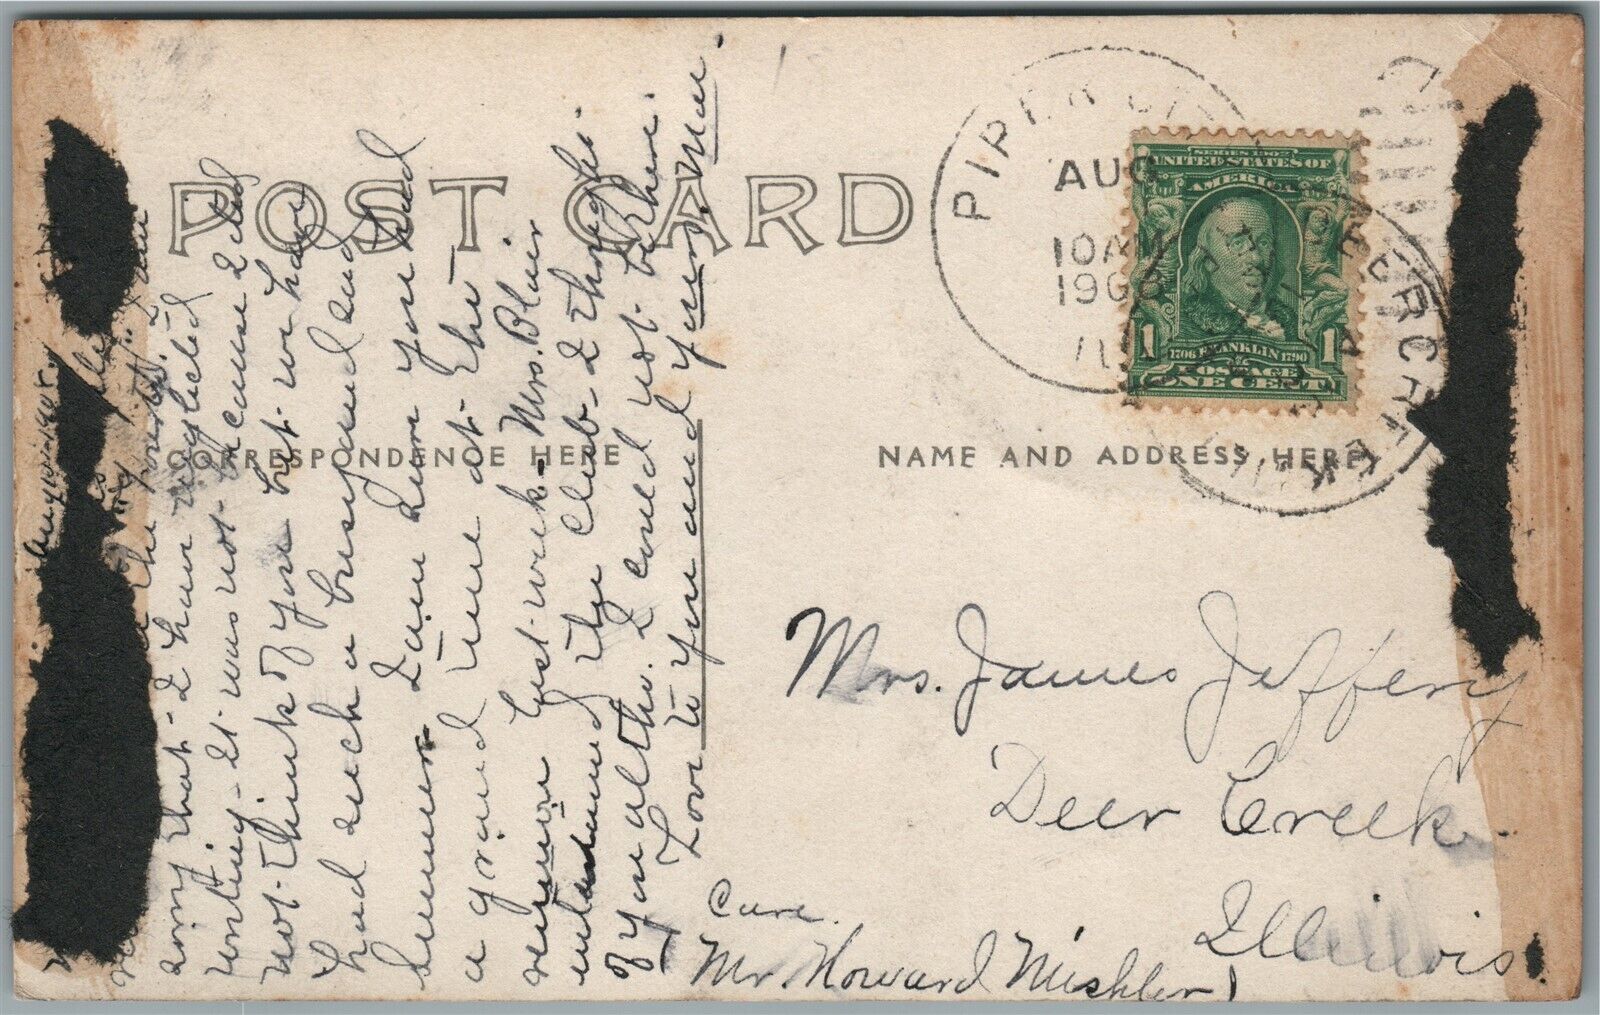 POST CARD
CORRESPONDENCE HERE
NAME AND ADDRESS HERE
PIPER CITY
AUG
10 AM
1908
SERIES 1902
UNITED STATES OF
AMERICA
1 1
1706 FRANKLIN 1790
POSTAGE
ONE CENT
DEER CREEK
Aug 10-1908.
sorry that I have neglected
writing - It was not because I did
not think of you but we have
had such a busy and
summer. I am sure you had
a grand time at the
reunion last week - Mrs. Blair
entertained the Club - I thought
of you all tho. I could not be there.
Love to you and yours, Mae.
Mrs. James Jeffery
Deer Creek
Illinois
Care
Mr Howard Mishler